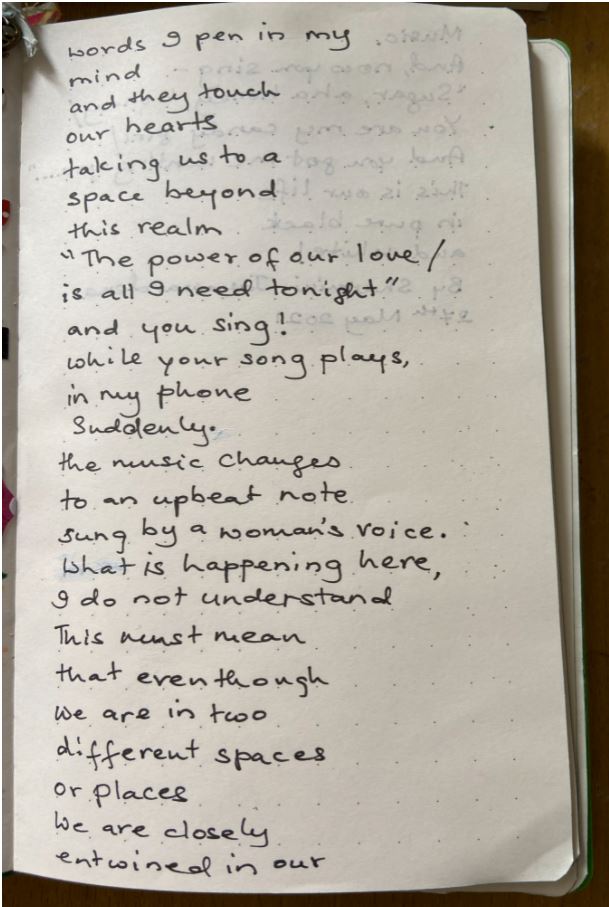 words I pen in my
mind
and they touch
our hearts
taking us to a
space beyond
this realm
"The power of our love/
is all I need tonight"
and you sing!
while your song plays,
in my phone
Suddenly.
the music changes
to an upbeat note
sung by a woman's voice.
What is happening here,
I do not understand
This must mean
that eventhough
we are in two
different spaces
or places
We are closely
entwined in our